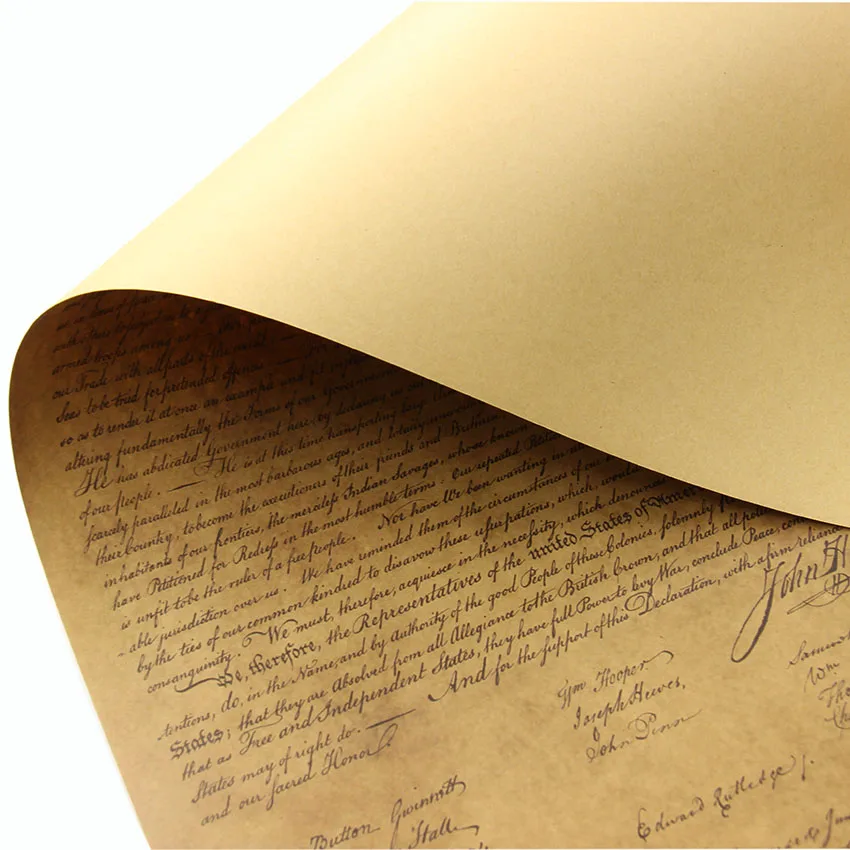 armed troops among us
our Trade with all parts of the world
Seas to be tried for pretended offences
so as to render it at once an example and fit
altering fundamentally the Forms of our Governments
He has abdicated Government here, by declaring us out
of our people. — He is at this time transporting large
scarcely paralleled in the most barbarous ages, and totally unworthy
their Country, to become the executioners of their friends and Brethren
inhabitants of our frontiers, the merciless Indian Savages, whose known
have Petitioned for Redress in the most humble terms: Our repeated Petitions
is unfit to be the ruler of a free people. Nor have We been wanting in
-able jurisdiction over us. We have reminded them of the circumstances of our
by the ties of our common kindred to disavow these usurpations, which, would
consanguinity. We must, therefore, acquiesce in the necessity, which denounces
We, therefore, the Representatives of the united States of Amer
tentions, do, in the Name, and by authority of the good People of these Colonies, solemnly
States; that they are Absolved from all Allegiance to the British Crown, and that all
that as Free and Independent States, they have full Power to levy War, conclude Peace,
States may of right do. — And for the support of this Declaration, with a firm reliance
and our sacred Honor
John H
Wm Hooper
Joseph Hewes,
John Penn
Samuel
Wm
Tho
Button Gwinnett
Hall
Edward Rutledge